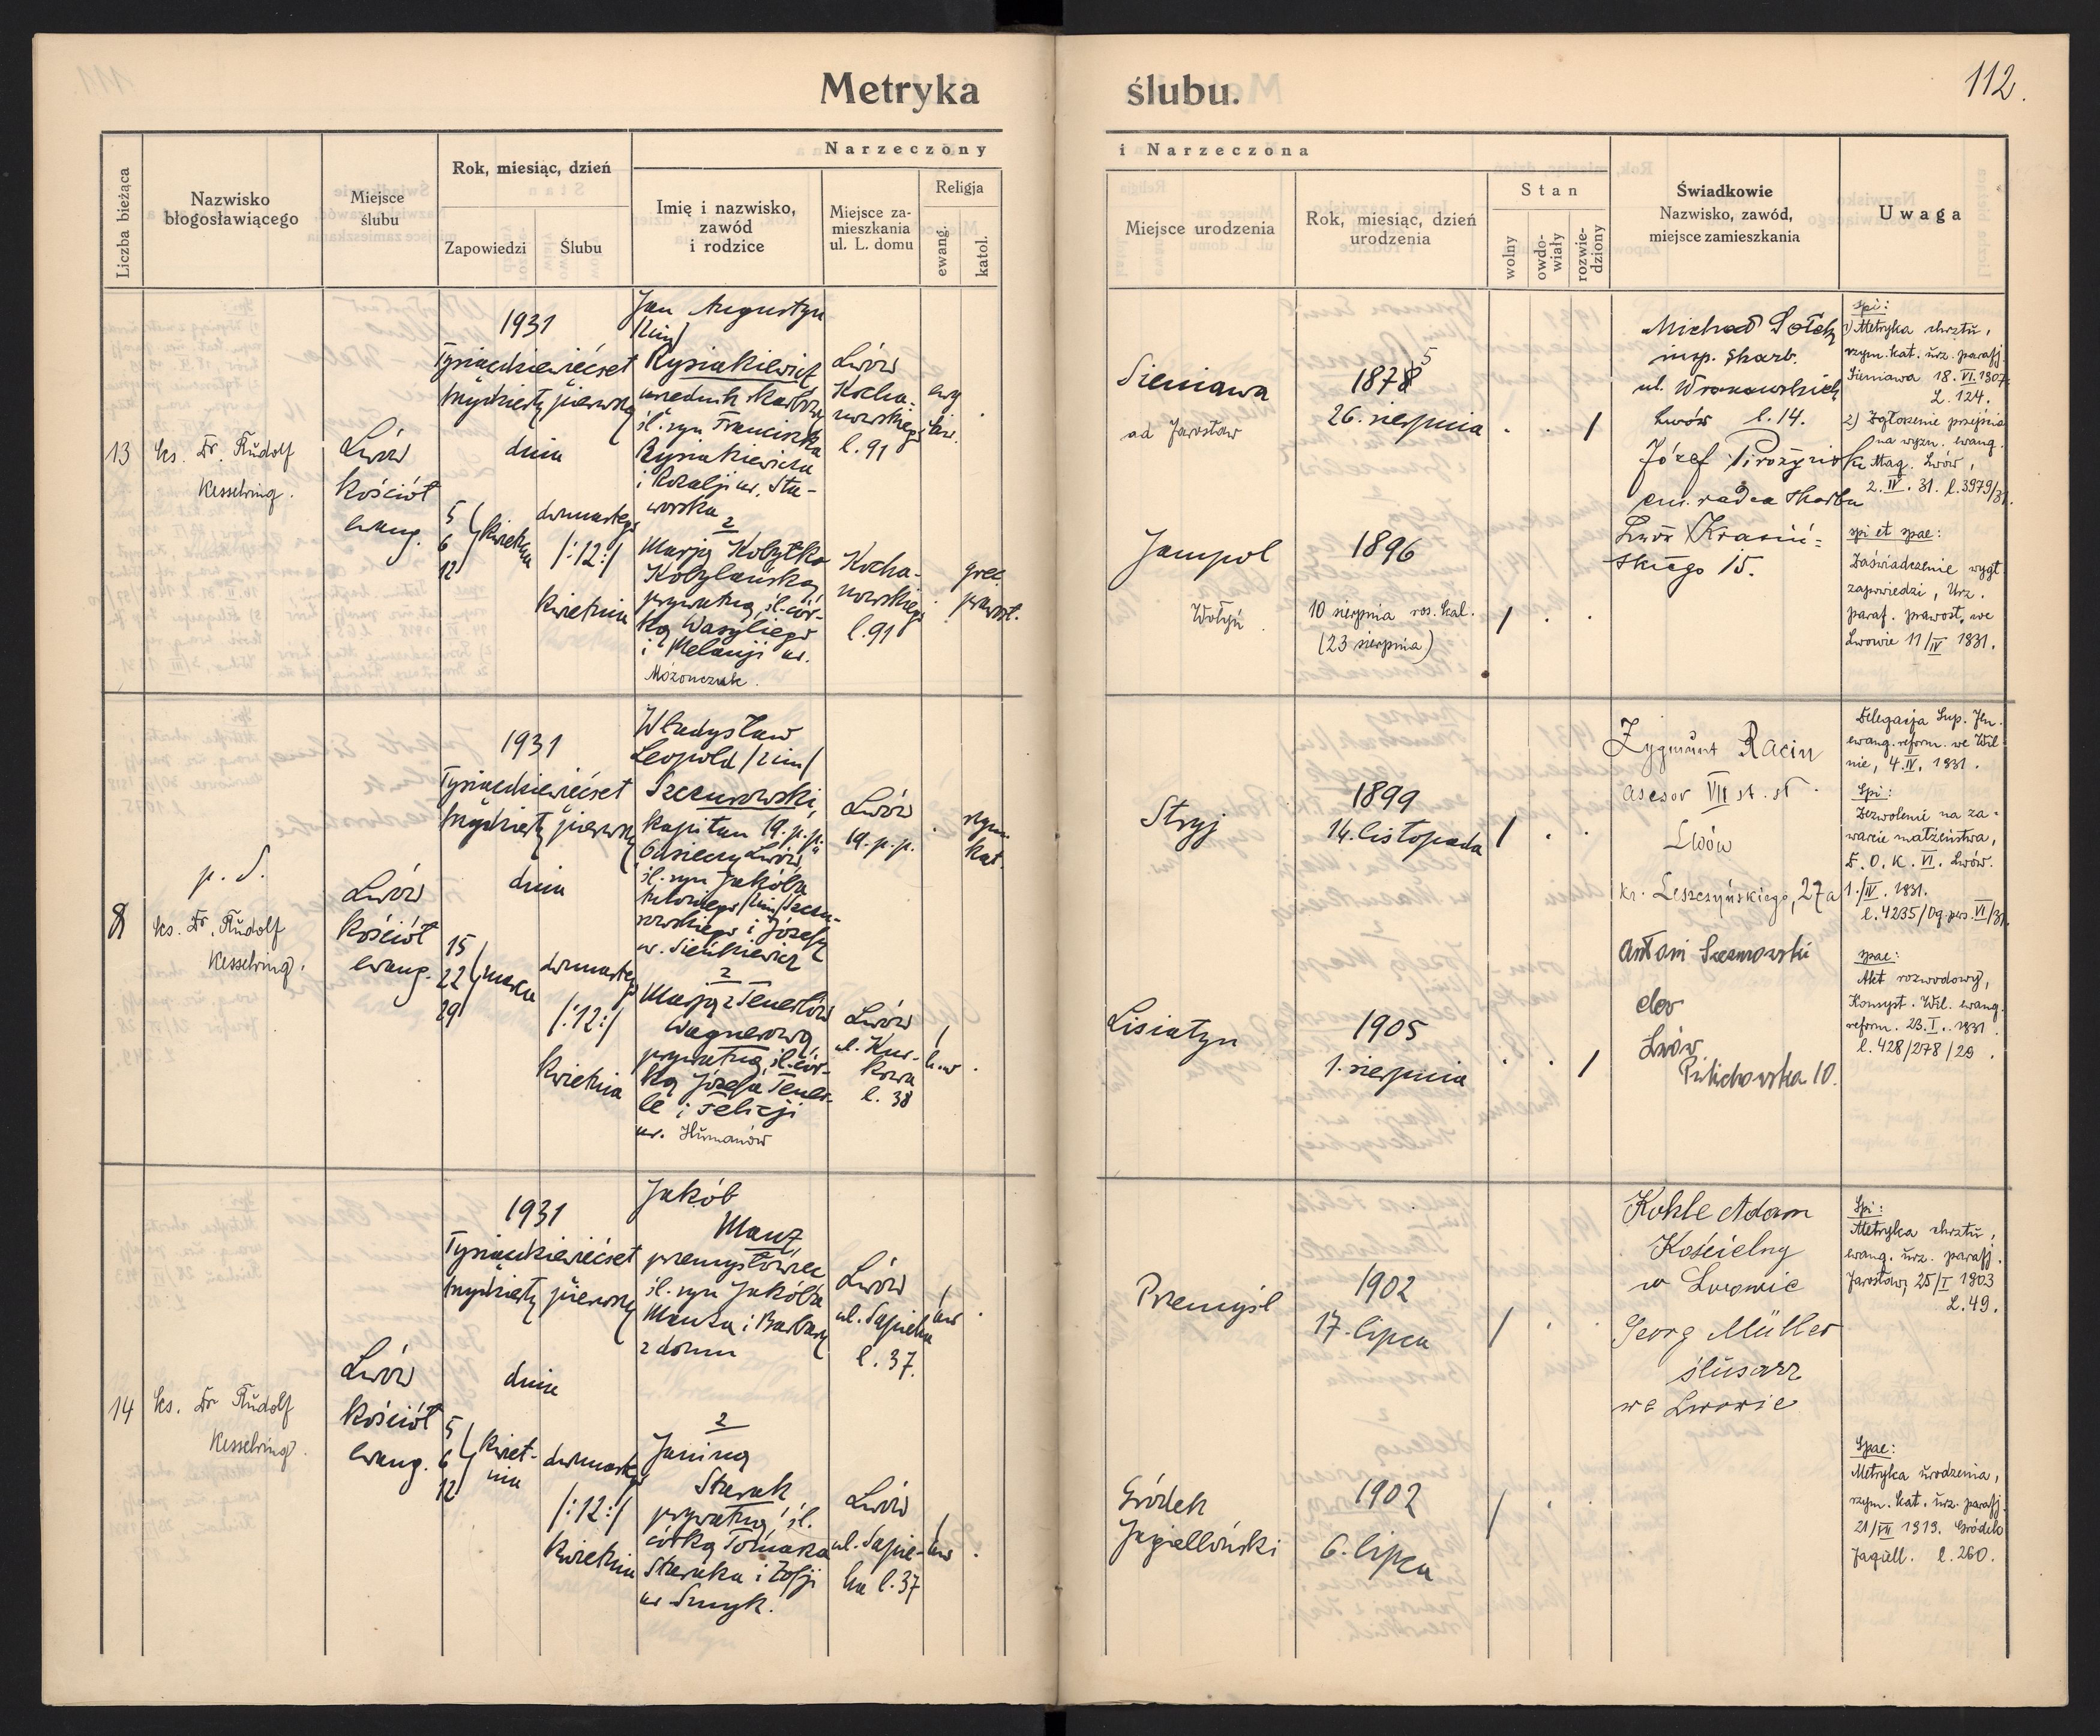 Metryka
ślubu.
112.
Narzeczony
i Narzeczona
Liczba bieżąca
Nazwisko
błogosławiącego
Miejsce
ślubu
Rok, miesiąc, dzień
Zapowiedzi
Ślubu
Imię i nazwisko,
zawód
i rodzice
Miejsce za-
mieszkania
ul. L. domu
Religja
ewang.
katol.
Miejsce urodzenia
Rok, miesiąc, dzień
urodzenia
Stan
wolny
owdo-
wiały
rozwie-
dziony
Świadkowie
Nazwisko, zawód,
miejsce zamieszkania
Uwaga
13
ks. Dr. Rudolf
Kesselring.
Lwów
Kościół
ewang.
1931
Tysiącdziewięćset
trzydzieśty pierwszy
dnia
5
6
12
kwietnia
dwunastego
/:12:/
kwietnia
Jan Augustyn
/2im/
Rysiakiewicz
urzednik skarbowy
śl. syn Franciszka
Rysiakiewicza
i Rozalji ur. Sta-
worska
z
Marją Kobyłko
Kobylańską
prywatną, śl. cór-
ką Wasyliego
i Melanji ur.
Możonczuk.
Lwów
Kocha-
nowskiego
l. 91
Kocha-
nowskiego
l. 91
ewg
grec.
prawosł.
Sieniawa
ad Jarosław
1878
5
26. sierpnia
Jampol
Wołyń
1896
10 sierpnia ros. kal.
(23 sierpnia)
Michał Sołtys
insp. skarb.
ul. Wronowskich
Lwów l. 14.
Józef Pirożyński
em. radca skarbu
Lwów Krasiń-
skiego 15.
spi:
1) Metryka chrztu,
rzym. kat. urz. parafj.
Sieniawa 18. VI. 1907.
L. 124.
2) Zgłoszenie przejścia
na wyzn. ewang.
Mag. Lwów,
2. IV. 31. l. 3979/31.
spi et spae:
Zaświadczenie wygł.
zapowiedzi, Urz.
paraf. prawosł. we
Lwowie 11/IV 1931.
8
p. d.
ks. Dr. Rudolf
Kesselring.
Lwów
Kościół
ewang.
1931
Tysiącdziewięćset
trzydzieśty pierwszy
dnia
15
22
29
marca
dwunastego
/:12:/
kwietnia
Władysław
Leopold /2im/
Szczurowski,
kapitan 19. p.p.
"Odsieczy Lwowa"
śl. syn Jakóba
Szczu-
rowskiego i Józefy
ur. Sieńkiewicz
z
Marją z Tenerlów
Wagnerową,
prywatną, śl. cór-
ką Józefa Tener-
le i Felicji
ur. Humanów
Lwów
19. p.p.
Lwów
ul. Kur-
kowa
l. 38
rzym.
kat.
Stryj
1899
14. listopada
Lisiatyn
1905
1. sierpnia
Zygmunt Racin
asesor VII st. sł.
Lwów
kr. Leszczyńskiego, 27a
Antoni Szczurowski
Lwów
Pilichowska 10.
Delegacja Sup. Jen.
ewang. reform. we Wil
nie, 4. IV. 1931.
Spi:
Zezwolenie na za-
warcie małżeństwa,
D. O. K. VI. Lwów.
1./IV. 1931.
l. 4235/Og. pers. VI/31.
spae:
Akt rozwodowy,
Konsyst. Wil. ewang.
reform. 23. I. 1931
l. 428/278/29.
14
ks. Dr Rudolf
Kesselring.
Lwów
Kościół
ewang.
1931
Tysiącdziewięćset
trzydzieśty pierwszy
dnia
5
6
12
kwiet-
nia
dwunastego
/:12:/
kwietnia
Jakób
Manz
przemysłowiec
śl. syn Jakóba
Manza i Barbary
z domu
z
Janiną
Starak
prywatną, śl.
córką Tomasza
Staraka i Zofji
ur Smyk.
Lwów
ul. Sapieha
l. 37.
Lwów
ul. Sapie-
ha l. 37
Przemyśl
1902
17. lipca
Gródek
Jagielloński
1902
6. lipca
Kohle Adam
Kościelny
w Lwowie
Georg Müller
ślusarz
we Lwowie
Spi:
Metryka chrztu,
ewang. urz. parafj.
Jarosław, 25/I 1903
L. 49.
Spae:
Metryka urodzenia,
rzym. kat. urz. parafj.
21/VII 1919. Gródek
Jagiell. l. 260.